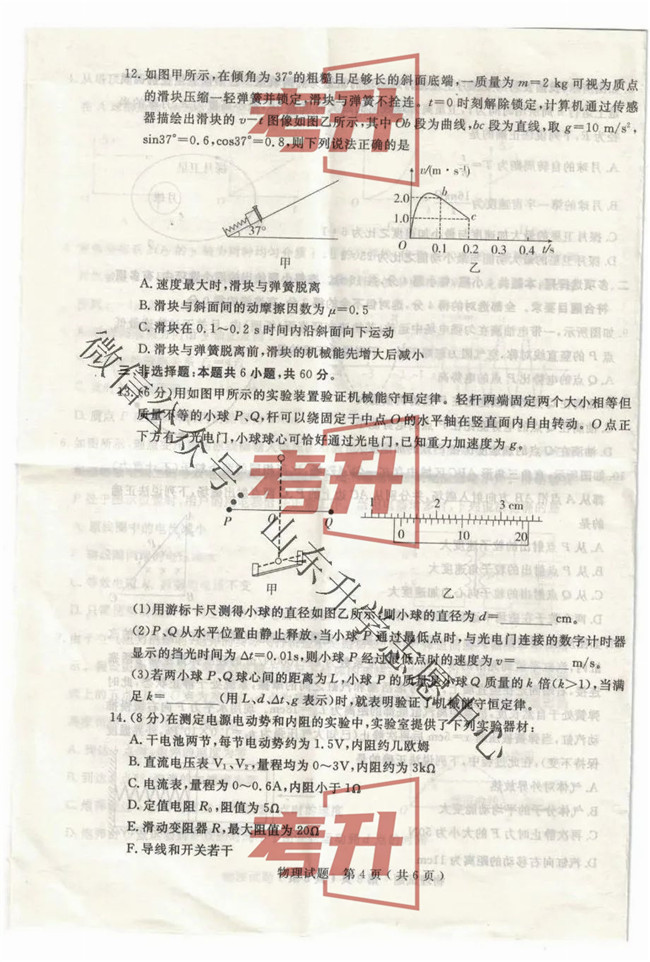 12. 如图甲所示,在倾角为 37°的粗糙且足够长的斜面底端,一质量为 m=2 kg 可视为质点
的滑块压缩一轻弹簧并锁定,滑块与弹簧不拴连。t=0 时刻解除锁定,计算机通过传感
器描绘出滑块的 v-t 图像如图乙所示,其中 Ob 段为曲线,bc 段为直线,取 g=10 m/s²,
sin37°=0.6,cos37°=0.8,则下列说法正确的是
37°
甲
v/(m·s⁻¹)
2.0
1.0
b
c
O
0.1 0.2 0.3 0.4 t/s
乙
A. 速度最大时,滑块与弹簧脱离
B. 滑块与斜面间的动摩擦因数为 μ=0.5
C. 滑块在 0.1~0.2 s 时间内沿斜面向下运动
D. 滑块与弹簧脱离前,滑块的机械能先增大后减小
三、非选择题:本题共 6 小题,共 60 分。
13. (6 分)用如图甲所示的实验装置验证机械能守恒定律。轻杆两端固定两个大小相等但
质量不等的小球 P、Q,杆可以绕固定于中点 O 的水平轴在竖直面内自由转动。O 点正
下方有一光电门,小球球心可恰好通过光电门,已知重力加速度为 g。
P
O
Q
甲
1 2 3 cm
0 10 20
乙
(1)用游标卡尺测得小球的直径如图乙所示,则小球的直径为 d=______ cm。
(2)P、Q 从水平位置由静止释放,当小球 P 通过最低点时,与光电门连接的数字计时器
显示的挡光时间为 Δt=0.01s,则小球 P 经过最低点时的速度为 v=______ m/s。
(3)若两小球 P、Q 球心间的距离为 L,小球 P 的质量是小球 Q 质量的 k 倍(k>1),当满
足 k=______(用 L、d、Δt、g 表示)时,就表明验证了机械能守恒定律。
14. (8 分)在测定电源电动势和内阻的实验中,实验室提供了下列实验器材:
A. 干电池两节,每节电动势约为 1.5V,内阻约几欧姆
B. 直流电压表 V₁、V₂,量程均为 0~3V,内阻约为 3kΩ
C. 电流表,量程为 0~0.6A,内阻小于 1Ω
D. 定值电阻 R₀,阻值为 5Ω
E. 滑动变阻器 R,最大阻值为 20Ω
F. 导线和开关若干
物理试题 第 4 页(共 6 页)
考升
考升
考升
微信公众号:山东升学志愿中心